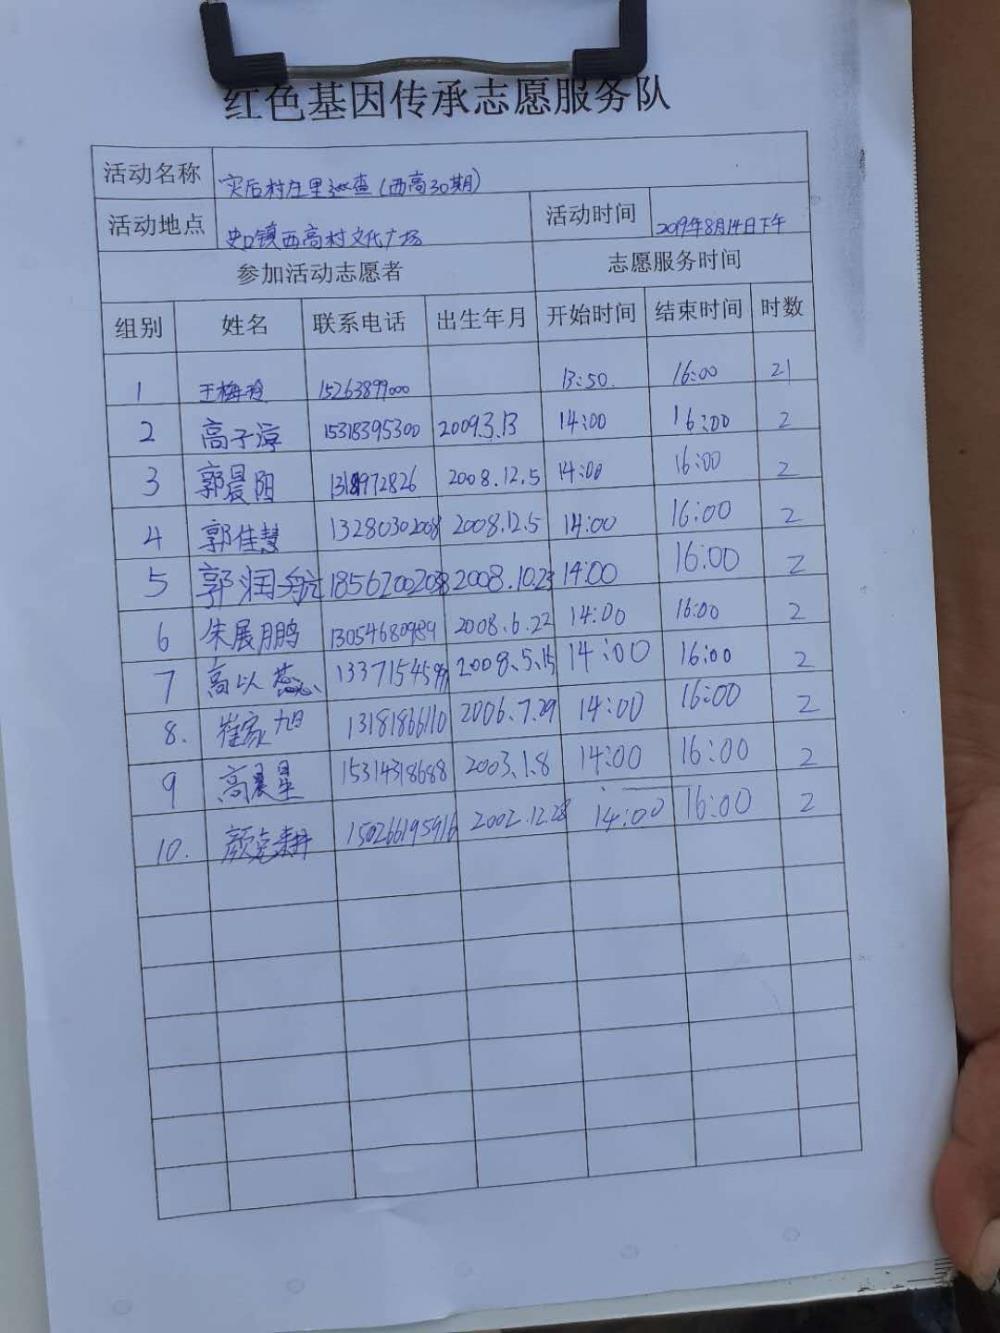 红色基因传承志愿服务队
活动名称 灾后村庄里巡查(西高30期)
活动地点 史口镇西高村文化广场 活动时间 2019年8月14日下午
参加活动志愿者 志愿服务时间
组别 姓名 联系电话 出生年月 开始时间 结束时间 时数
1 王梅玲 15263899000 13:50. 16:00 21
2 高子淳 15318395300 2009.3.13 14:00 16:00 2
3 郭晨阳 2008.12.5 14:00 16:00 2
4 郭佳慧 13280302008 2008.12.5 14:00 16:00 2
5 郭润航 2008.10.23 14:00 16:00 2
6 朱展鹏 13054680989 2008.6.22 14:00 16:00 2
7 高以蕊 2008.5.15 14:00 16:00 2
8. 崔家旭 13181866110 2006.7.29 14:00 16:00 2
9 高晨星 15314318688 2003.1.8 14:00 16:00 2
10. 颜克耕 150266195916 2002.12.28 14:00 16:00 2